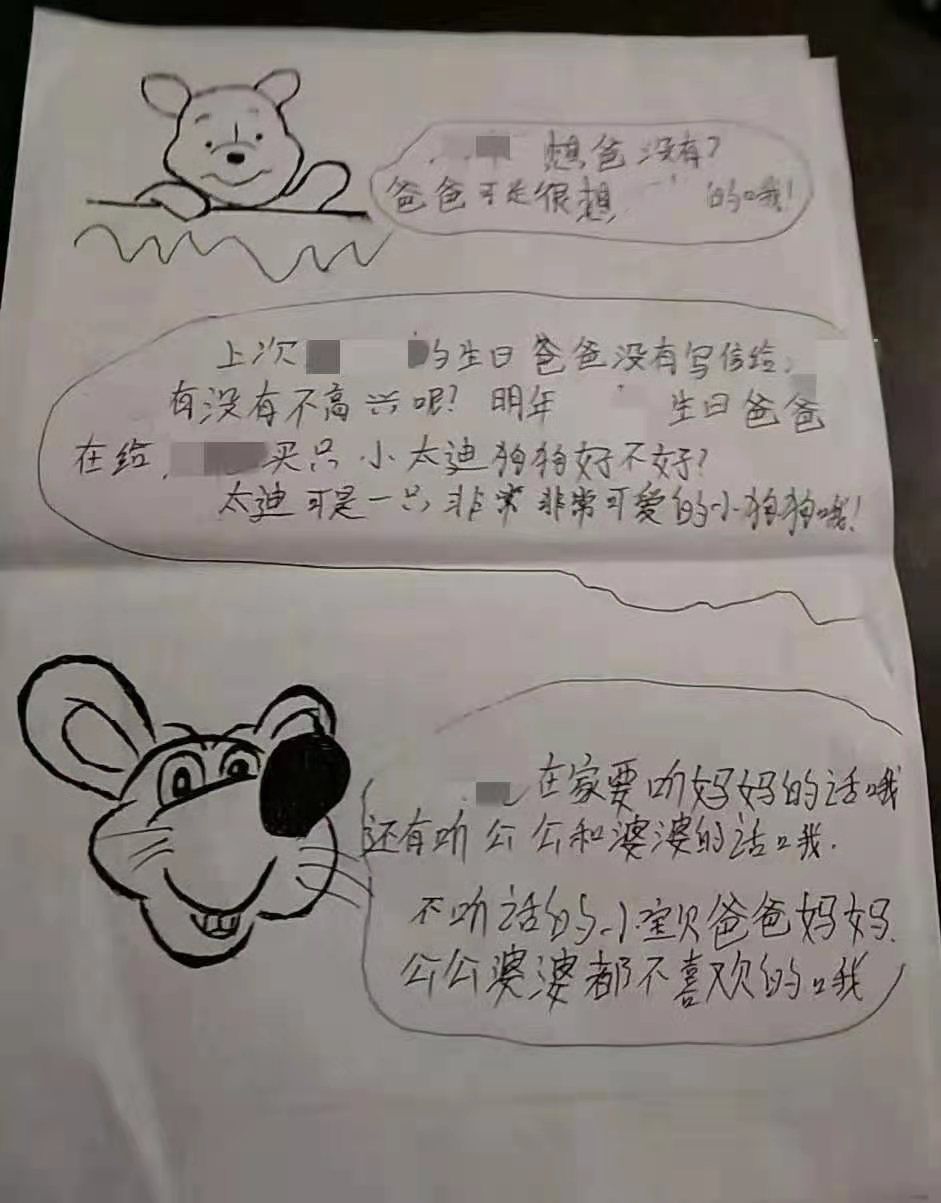 想爸没有?
爸爸可是很想 的哦!
上次 的生日爸爸没有写信给
有没有不高兴呢? 明年 生日爸爸
在给 买只小太迪狗狗好不好?
太迪可是一只非常非常可爱的小狗狗哦!
在家要听妈妈的话哦
还有听公公和婆婆的话哦.
不听话的小宝贝爸爸妈妈
公公婆婆都不喜欢的哦